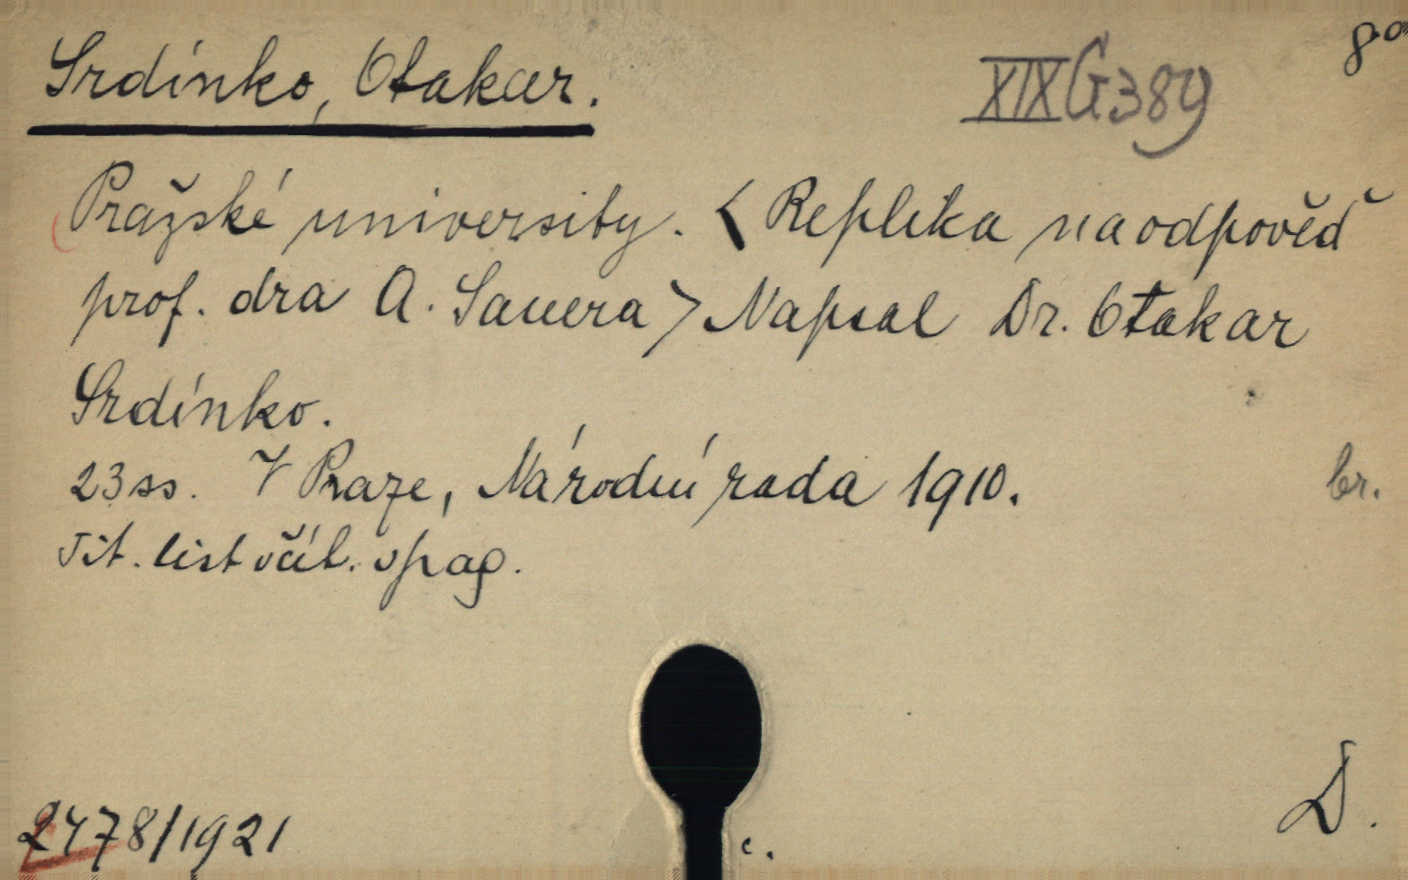 Srdínko, Otakar. XIX G 389 8°
Pražské university. < Replika na odpověď
prof. dra A. Sauera > Napsal Dr. Otakar
Srdínko.
23 ss. V Praze, Národní rada 1910. br.
Tit. list včít. v pag.
2478/1921 c. D.